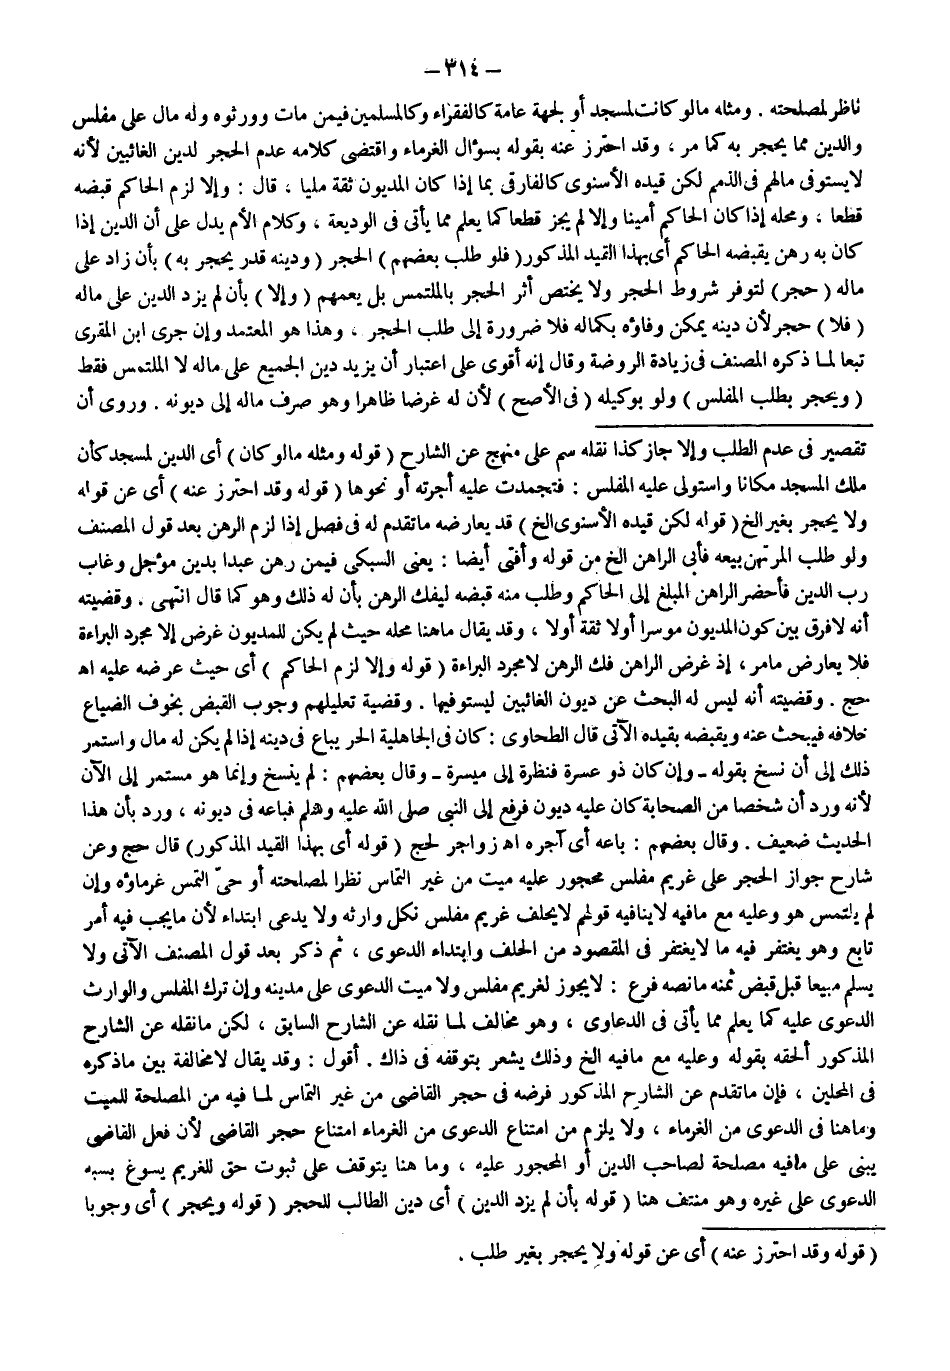 – ٣١٤ –
ناظر لمصلحته . ومثله مالو كانت لمسجد أو لجهة عامة كالفقراء وكالمسلمين فيمن مات وورثوه وله مال على مفلس
والدين مما يحجر به كما مر ، وقد احترز عنه بقوله بسؤال الغرماء واقتضى كلامه عدم الحجر لدين الغائبين لأنه
لايستوفى مالهم فى الذمم لكن قيده الأسنوى كالفارقى بما إذا كان المديون ثقة مليا ، قال : وإلا لزم الحاكم قبضه
قطعا ، ومحله إذا كان الحاكم أمينا وإلا لم يجز قطعا كما يعلم مما يأتى فى الوديعة ، وكلام الأم يدل على أن الدين إذا
كان به رهن يقبضه الحاكم أى بهذا القيد المذكور ( فلو طلب بعضهم ) الحجر ( ودينه قدر يحجر به ) بأن زاد على
ماله ( حجر ) لتوفر شروط الحجر ولا يختص أثر الحجر بالملتمس بل يعمهم ( وإلا ) بأن لم يزد الدين على ماله
( فلا ) حجر لأن دينه يمكن وفاؤه بكماله فلا ضرورة إلى طلب الحجر ، وهذا هو المعتمد وإن جرى ابن المقرى
تبعا لما ذكره المصنف فى زيادة الروضة وقال إنه أقوى على اعتبار أن يزيد دين الجميع على ماله لا الملتمس فقط
( ويحجر بطلب المفلس ) ولو بوكيله ( فى الأصح ) لأن له غرضا ظاهرا وهو صرف ماله إلى ديونه . وروى أن
تقصير فى عدم الطلب وإلا جاز كذا نقله سم على منهج عن الشارح ( قوله ومثله مالو كان ) أى الدين لمسجد كأن
ملك المسجد مكانا واستولى عليه المفلس : فتجمدت عليه أجرته أو نحوها ( قوله وقد احترز عنه ) أى عن قوله
ولا يحجر بغير الخ ( قوله لكن قيده الأسنوى الخ ) قد يعارضه ماتقدم له فى فصل إذا لزم الرهن بعد قول المصنف
ولو طلب المرتهن بيعه فأبى الراهن الخ من قوله وأفتى أيضا : يعنى السبكى فيمن رهن عبدا بدين مؤجل وغاب
رب الدين فأحضر الراهن المبلغ إلى الحاكم وطلب منه قبضه ليفك الرهن بأن له ذلك وهو كما قال انتهى . وقضيته
أنه لافرق بين كون المديون موسرا أولا ثقة أولا ، وقد يقال ماهنا محله حيث لم يكن للمديون غرض إلا مجرد البراءة
فلا يعارض مامر ، إذ غرض الراهن فك الرهن لامجرد البراءة ( قوله وإلا لزم الحاكم ) أى حيث عرضه عليه اه
حج . وقضيته أنه ليس له البحث عن ديون الغائبين ليستوفيها . وقضية تعليلهم وجوب القبض بخوف الضياع
خلافه فيبحث عنه ويقبضه بقيده الآتى قال الطحاوى : كان فى الجاهلية الحر يباع فى دينه إذا لم يكن له مال واستمر
ذلك إلى أن نسخ بقوله ـ وإن كان ذو عسرة فنظرة إلى ميسرة ـ وقال بعضهم : لم ينسخ وإنما هو مستمر إلى الآن
لأنه ورد أن شخصا من الصحابة كان عليه ديون فرفع إلى النبي صلى الله عليه وسلم فباعه فى ديونه ، ورد بأن هذا
الحديث ضعيف . وقال بعضهم : باعه أى آجره اه زواجر لحج ( قوله أى بهذا القيد المذكور ) قال حج وعن
شارح جواز الحجر على غريم مفلس محجور عليه ميت من غير التماس نظرا لمصلحته أو حى التمس غرماؤه وإن
لم يلتمس هو وعليه مع مافيه لاينافيه قولهم لايحلف غريم مفلس نكل وارثه ولا يدعى ابتداء لأن مايجب فيه أمر
تابع وهو يغتفر فيه ما لايغتفر فى المقصود من الحلف وابتداء الدعوى ، ثم ذكر بعد قول المصنف الآتى ولا
يسلم مبيعا قبل قبض ثمنه مانصه فرع : لايجوز لغريم مفلس ولا ميت الدعوى على مدينه وإن ترك المفلس والوارث
الدعوى عليه كما يعلم مما يأتى فى الدعاوى ، وهو مخالف لما نقله عن الشارح السابق ، لكن مانقله عن الشارح
المذكور ألحقه بقوله وعليه مع مافيه الخ وذلك يشعر بتوقفه فى ذاك . أقول : وقد يقال لامخالفة بين ماذكره
فى المحلين ، فإن ماتقدم عن الشارح المذكور فرضه فى حجر القاضى من غير التماس لما فيه من المصلحة للميت
وماهنا فى الدعوى من الغرماء ، ولا يلزم من امتناع الدعوى من الغرماء امتناع حجر القاضى لأن فعل القاضى
يبنى على مافيه مصلحة لصاحب الدين أو المحجور عليه ، وما هنا يتوقف على ثبوت حق للغريم يسوغ بسببه
الدعوى على غيره وهو منتف هنا ( قوله بأن لم يزد الدين ) أى دين الطالب للحجر ( قوله ويحجر ) أى وجوبا
( قوله وقد احترز عنه ) أى عن قوله ولا يحجر بغير طلب .